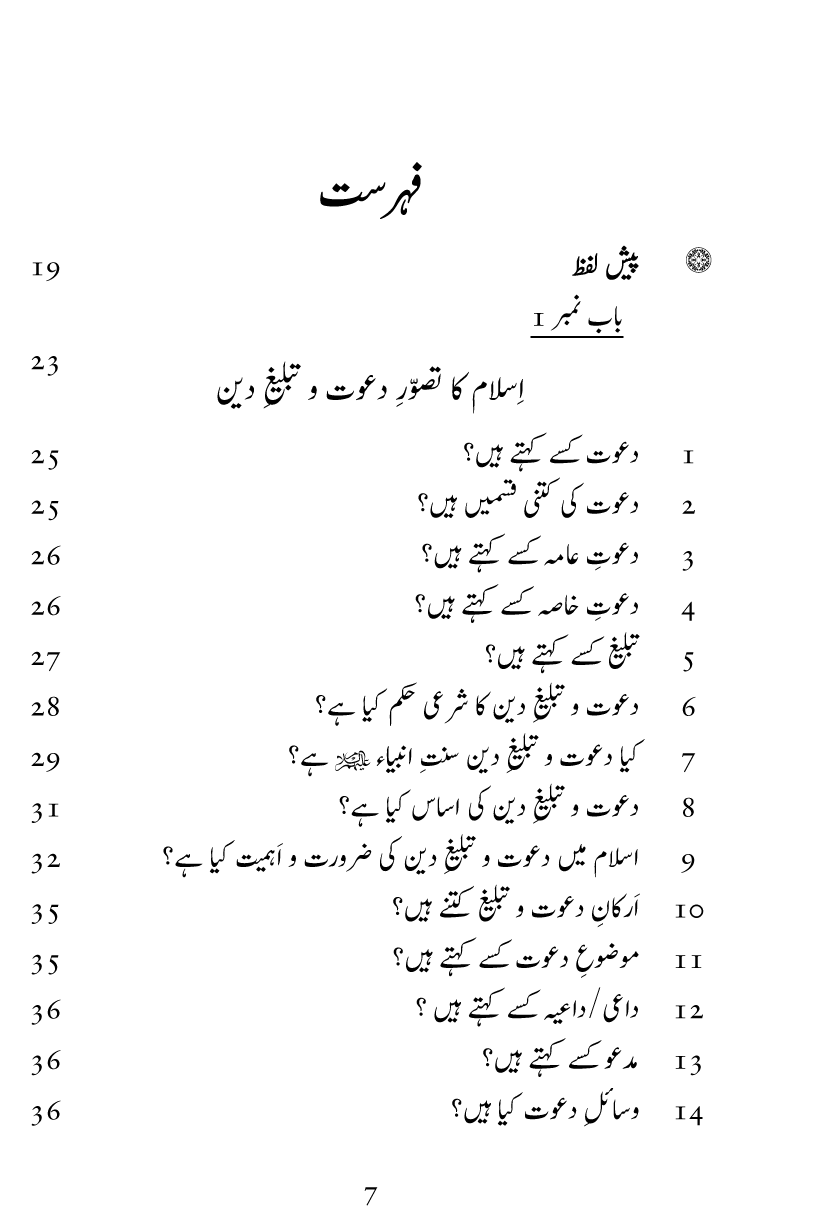 فہرست
پیش لفظ 19
باب نمبر 1
23
اِسلام کا تصوّرِ دعوت و تبلیغِ دین
1 دعوت کسے کہتے ہیں؟ 25
2 دعوت کی کتنی قسمیں ہیں؟ 25
3 دعوتِ عامہ کسے کہتے ہیں؟ 26
4 دعوتِ خاصہ کسے کہتے ہیں؟ 26
5 تبلیغ کسے کہتے ہیں؟ 27
6 دعوت و تبلیغِ دین کا شرعی حکم کیا ہے؟ 28
7 کیا دعوت و تبلیغِ دین سنتِ انبیاء علیہم السلام ہے؟ 29
8 دعوت و تبلیغِ دین کی اساس کیا ہے؟ 31
9 اسلام میں دعوت و تبلیغِ دین کی ضرورت و اَہمیت کیا ہے؟ 32
10 اَرکانِ دعوت و تبلیغ کتنے ہیں؟ 35
11 موضوعِ دعوت کسے کہتے ہیں؟ 35
12 داعی/داعیہ کسے کہتے ہیں ؟ 36
13 مدعو کسے کہتے ہیں؟ 36
14 وسائلِ دعوت کیا ہیں؟ 36
7